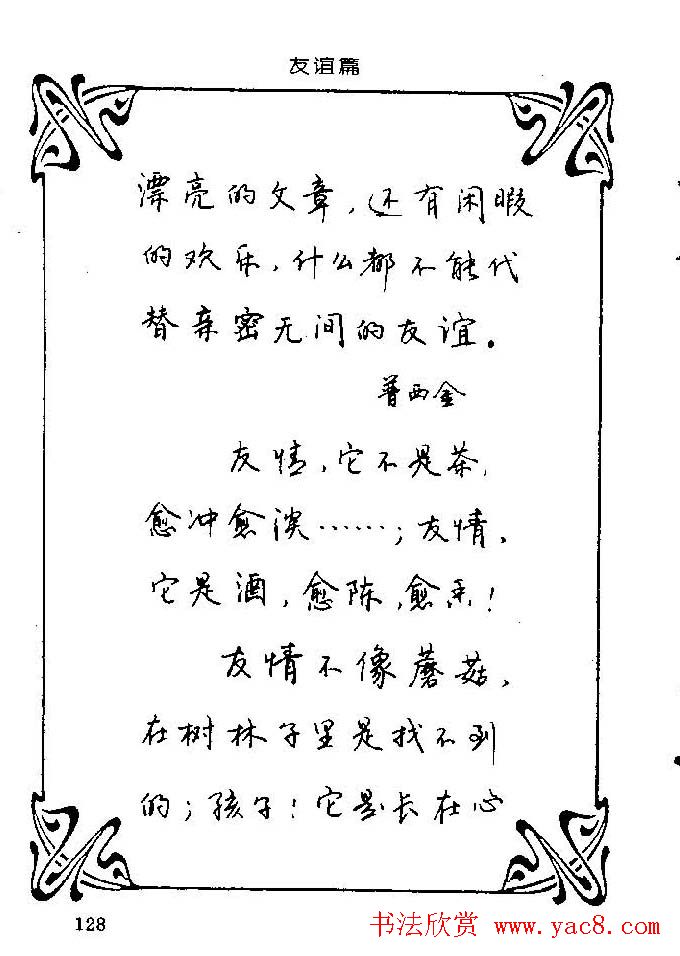 友谊篇
漂亮的文章，还有闲暇
的欢乐，什么都不能代
替亲密无间的友谊。
普西金
友情，它不是茶，
愈冲愈淡……；友情，
它是酒，愈陈，愈香！
友情不像蘑菇，
在树林子里是找不到
的；孩子！它是长在心
128
书法欣赏 www.yac8.com